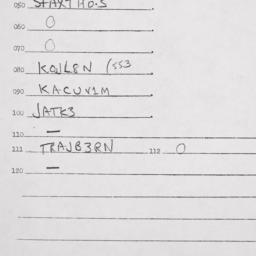 050 SFAXTHO.S
060 O
070 O
080 KOJLEN (553
090 KACUV1M
100 JATK3
110 —
111 TRAJB3RN 112 O
120 —